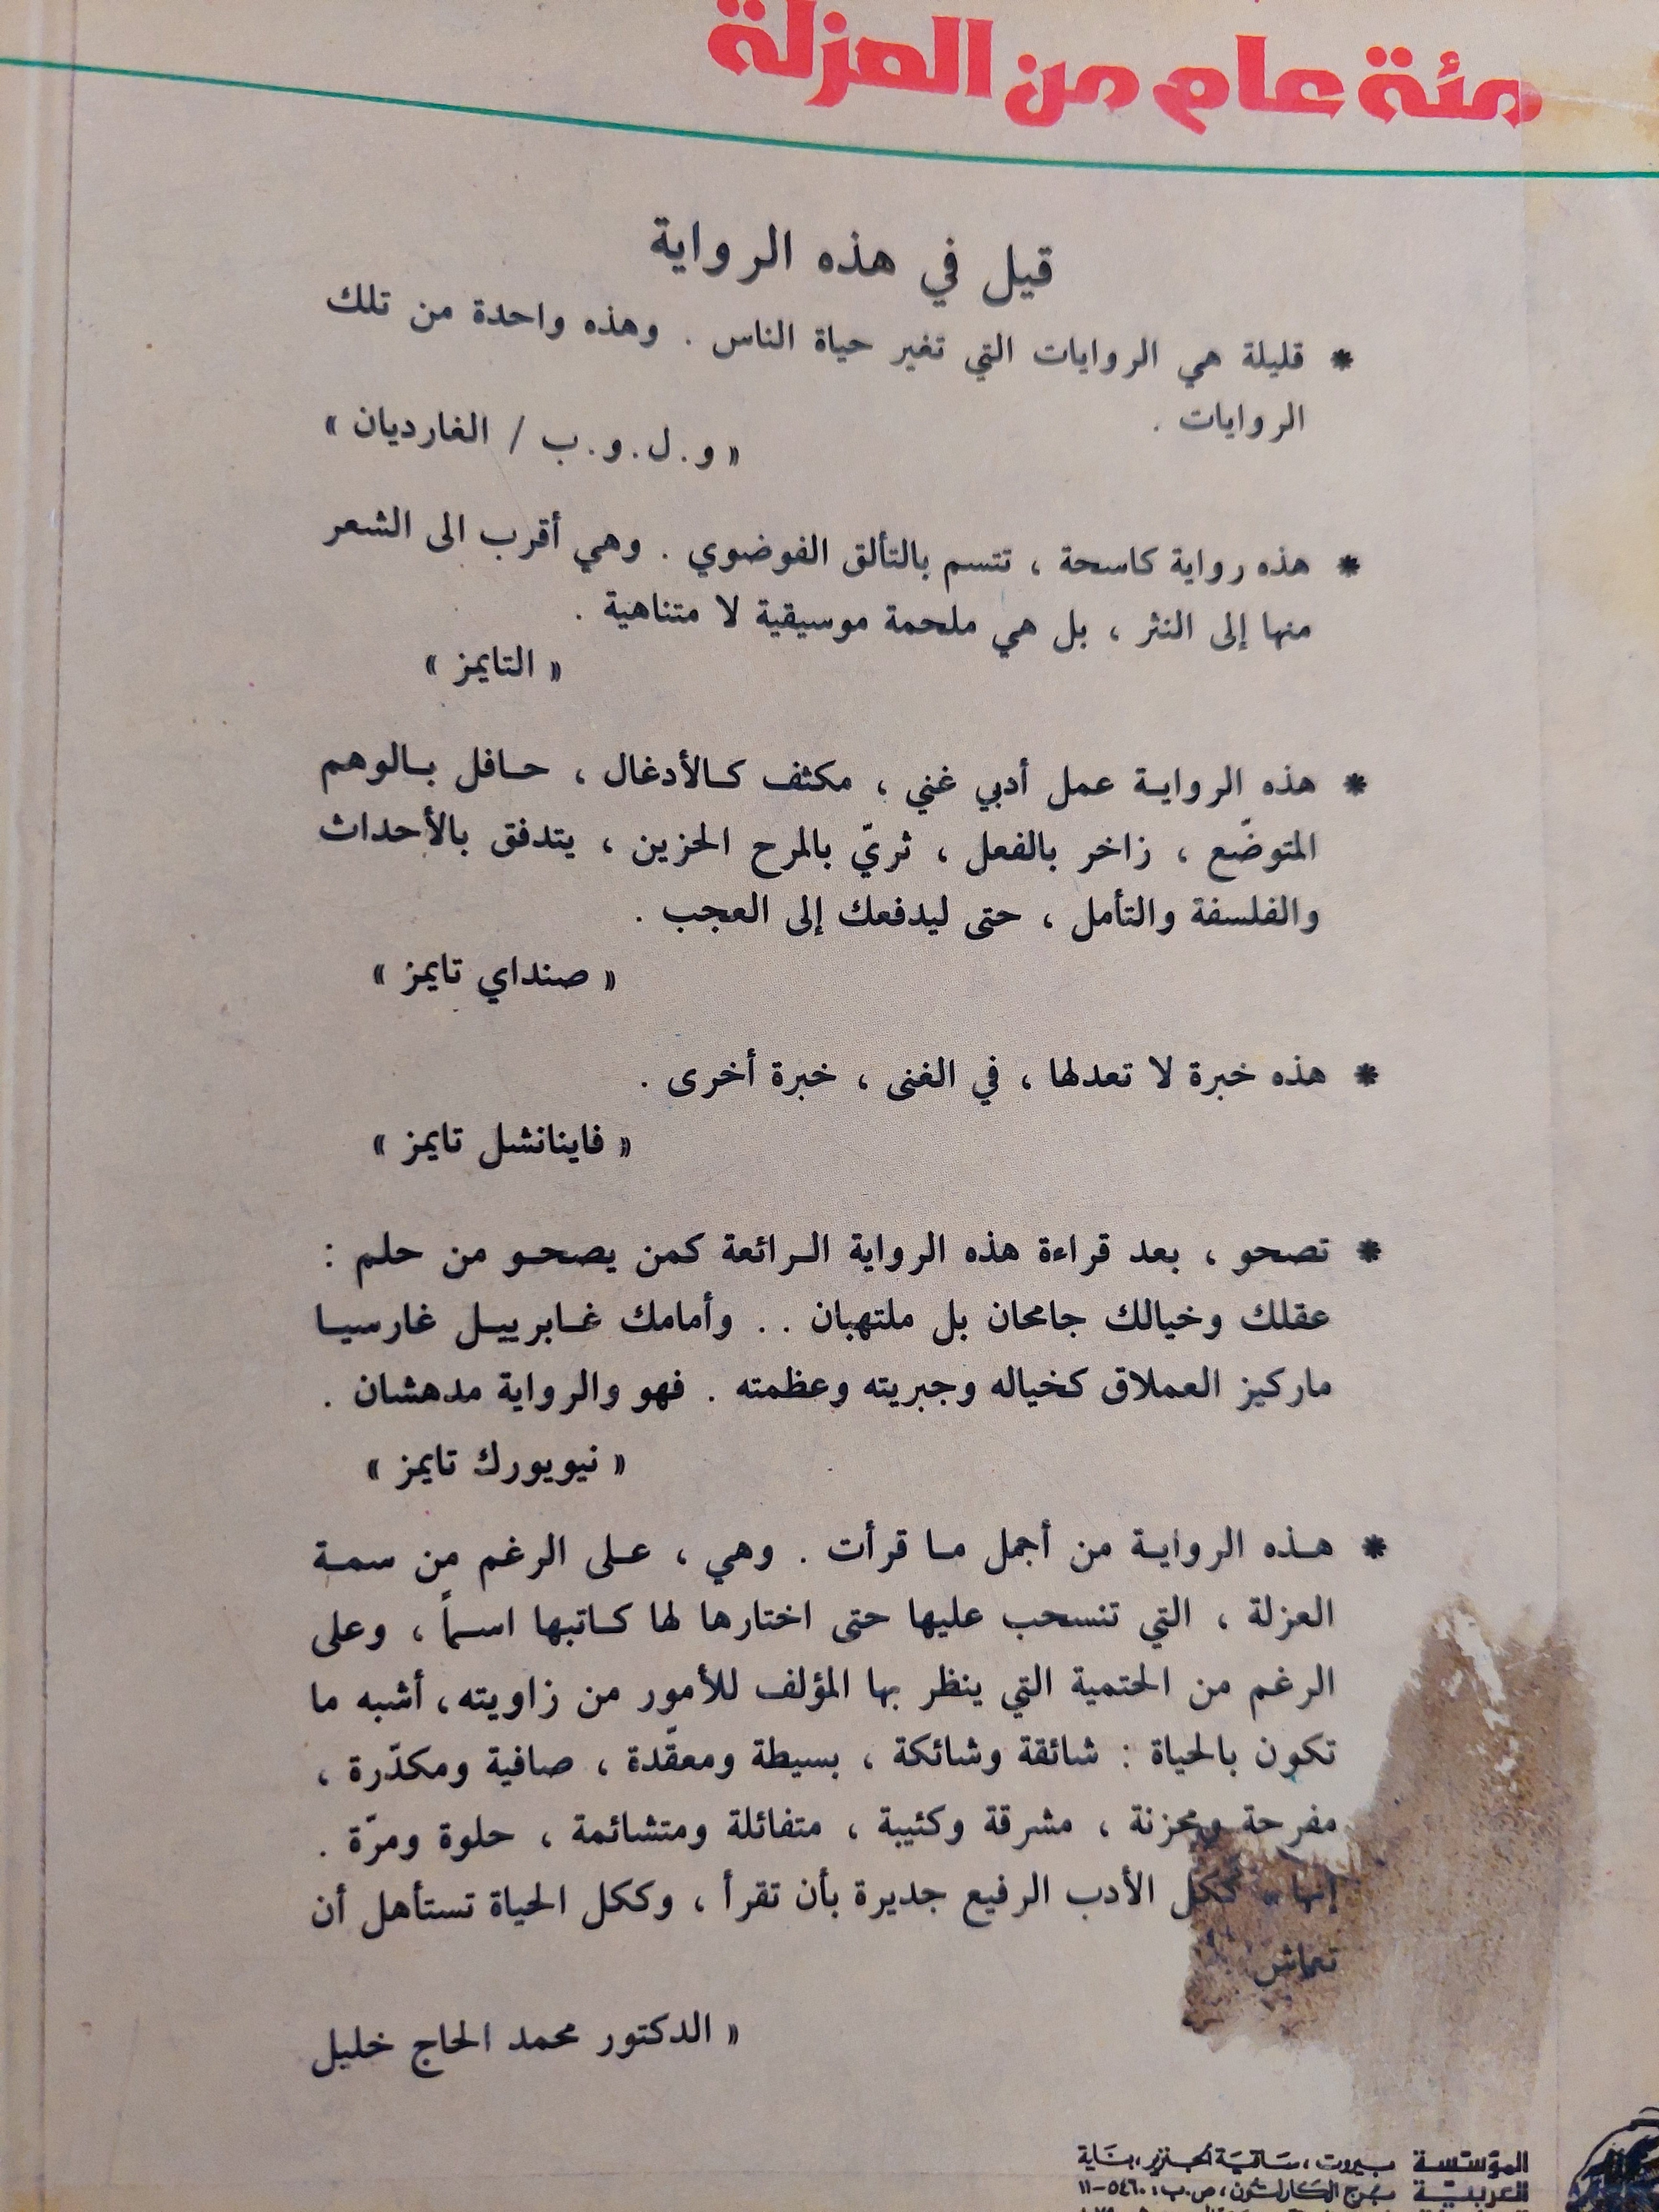 مئة عام من العزلة
قيل في هذه الرواية
* قليلة هي الروايات التي تغير حياة الناس . وهذه واحدة من تلك
الروايات .
« و . ل . و . ب / الغارديان »
* هذه رواية كاسحة ، تتسم بالتألق الفوضوي . وهي أقرب الى الشعر
منها إلى النثر ، بل هي ملحمة موسيقية لا متناهية .
« التايمز »
* هذه الرواية عمل أدبي غني ، مكثف كالأدغال ، حافل بالوهم
المتوضّع ، زاخر بالفعل ، ثريّ بالمرح الحزين ، يتدفق بالأحداث
والفلسفة والتأمل ، حتى ليدفعك إلى العجب .
« صنداي تايمز »
* هذه خبرة لا تعدلها ، في الغنى ، خبرة أخرى .
« فاينانشل تايمز »
* تصحو ، بعد قراءة هذه الرواية الرائعة كمن يصحو من حلم :
عقلك وخيالك جامحان بل ملتهبان . . وأمامك غابرييل غارسيا
ماركيز العملاق كخياله وجبريته وعظمته . فهو والرواية مدهشان .
« نيويورك تايمز »
* هذه الرواية من أجمل ما قرأت . وهي ، على الرغم من سمة
العزلة ، التي تنسحب عليها حتى اختارها لها كاتبها اسماً ، وعلى
الرغم من الحتمية التي ينظر بها المؤلف للأمور من زاويته ، أشبه ما
تكون بالحياة : شائقة وشائكة ، بسيطة ومعقّدة ، صافية ومكدّرة ،
مفرحة ومحزنة ، مشرقة وكئيبة ، متفائلة ومتشائمة ، حلوة ومرّة .
إنها ، ككل الأدب الرفيع جديرة بأن تقرأ ، وككل الحياة تستأهل أن
تعاش
« الدكتور محمد الحاج خليل
المؤسسة بيروت ، ساقية الجنزير ، بناية
العربية برج الكارلتون ، ص.ب : ٥٤٦٠-١١